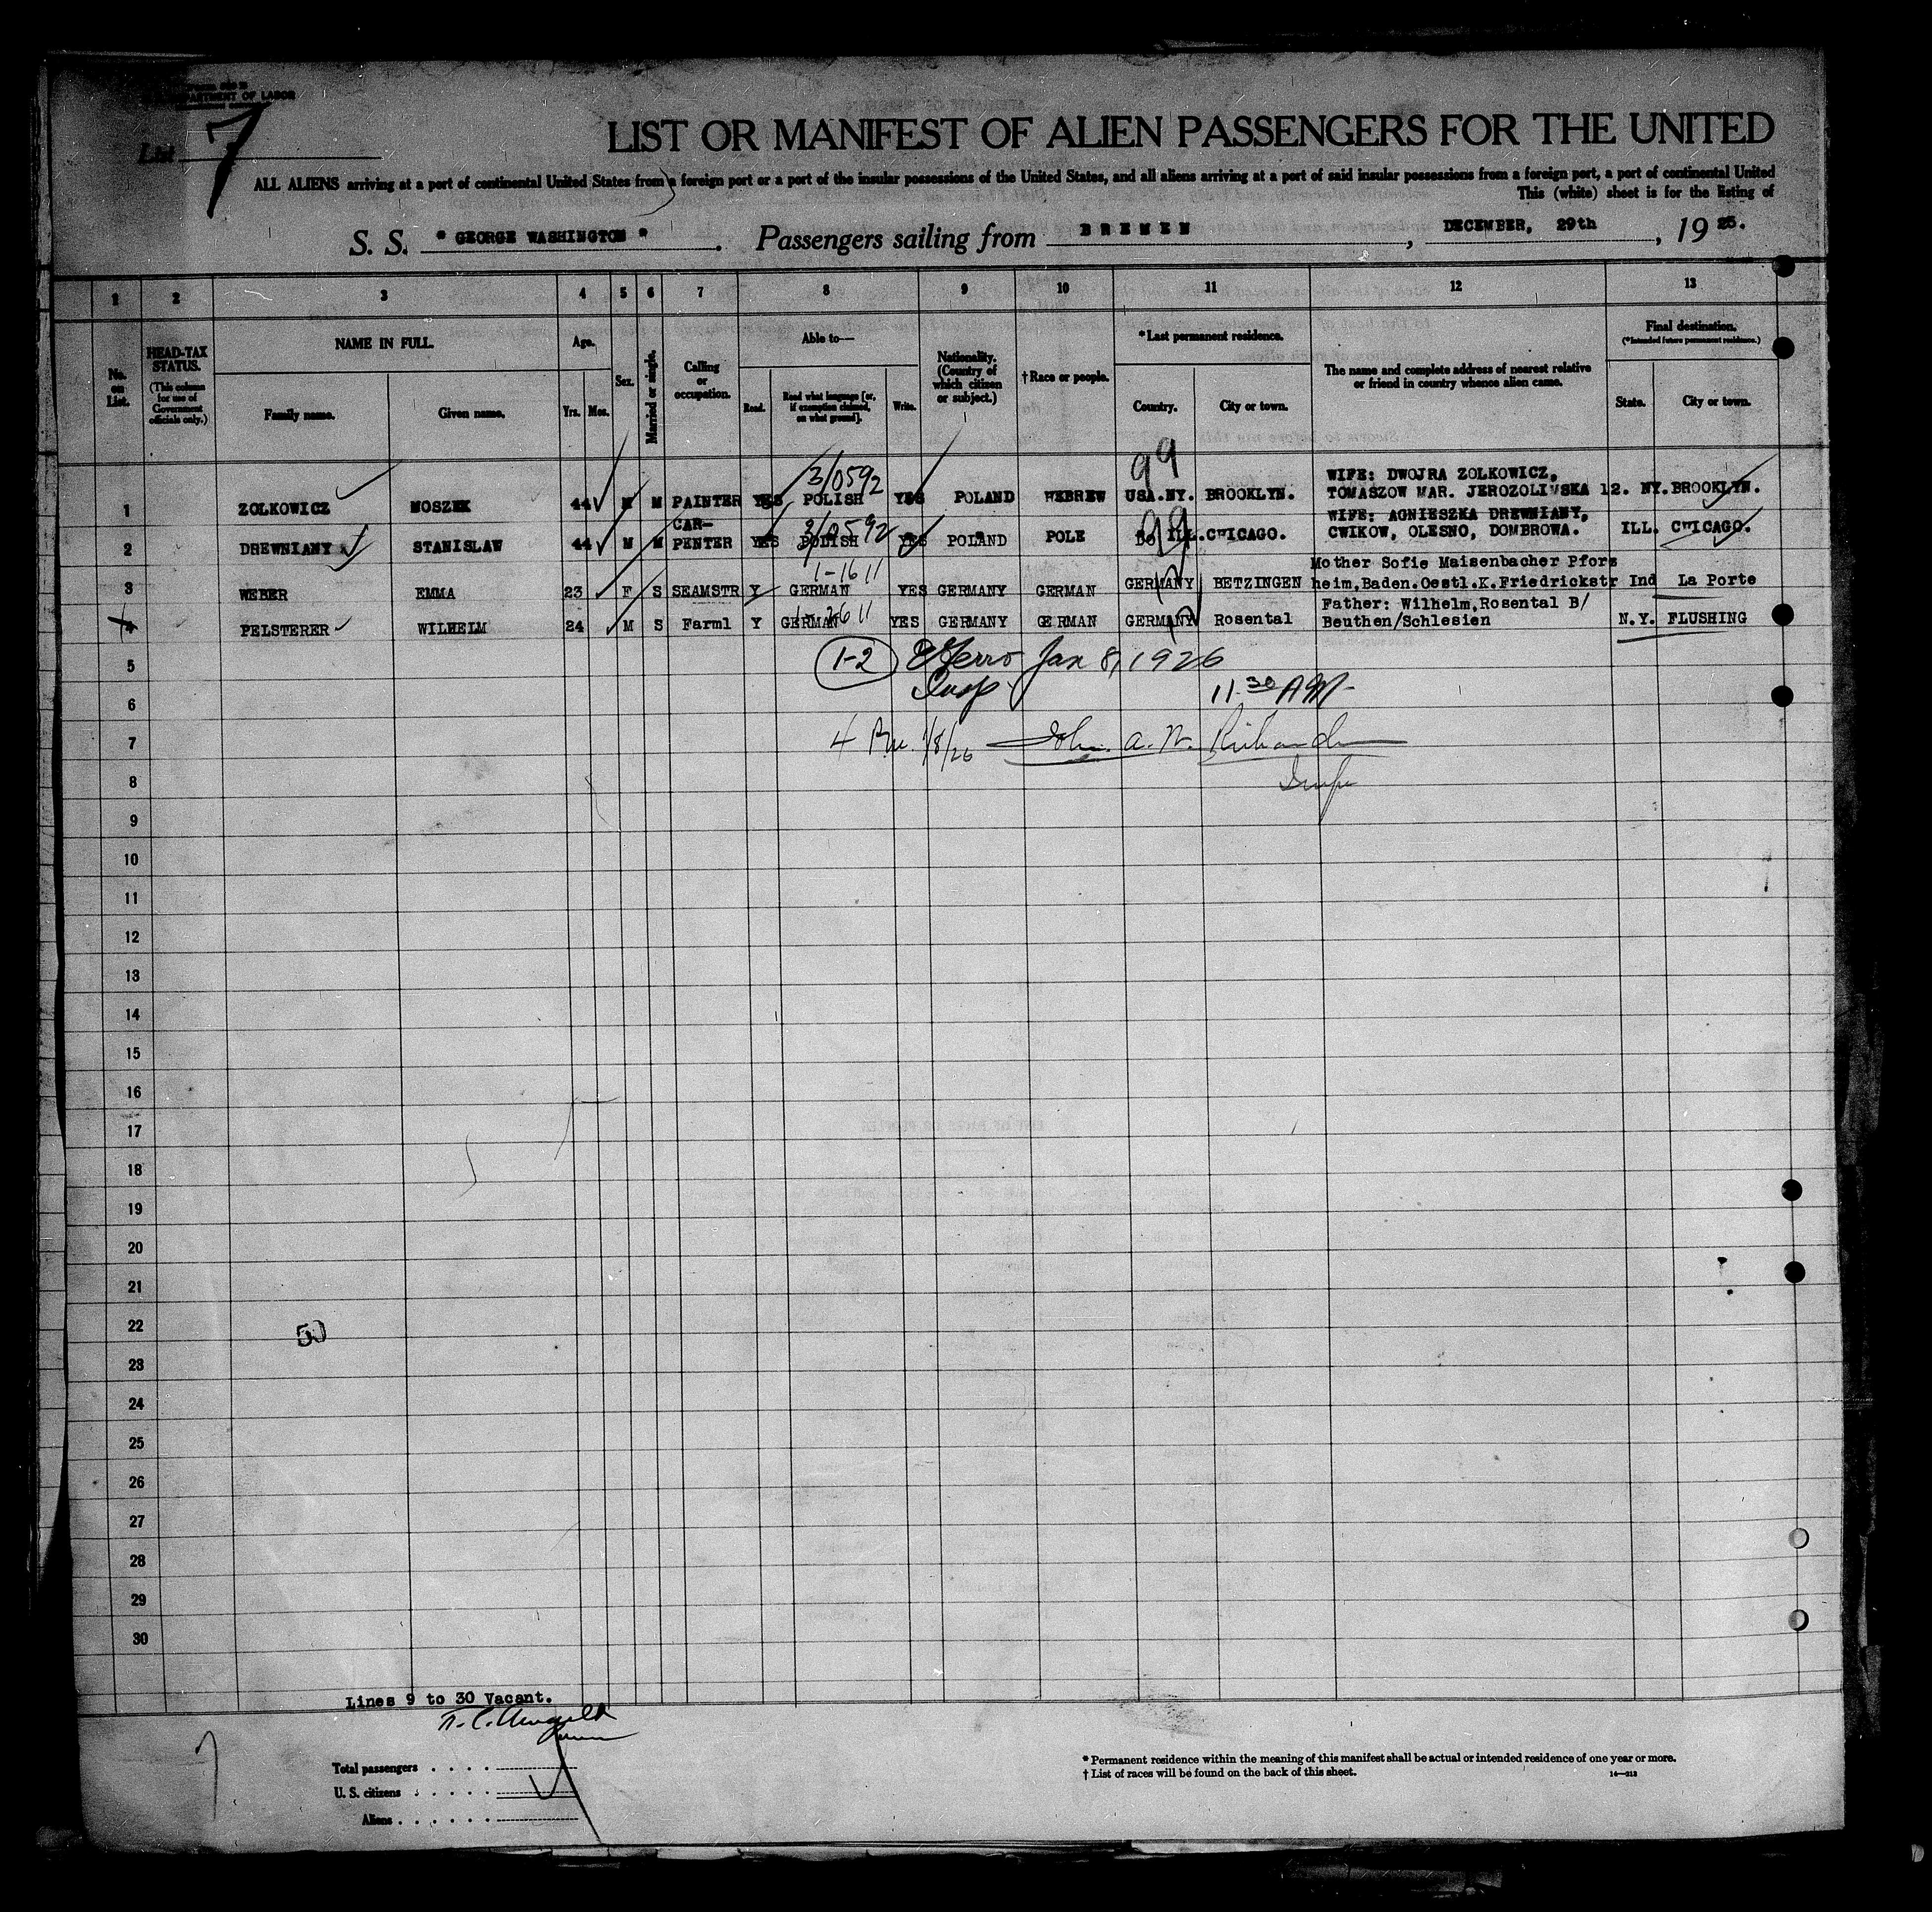 DEPARTMENT OF LABOR
List 7
LIST OR MANIFEST OF ALIEN PASSENGERS FOR THE UNITED
ALL ALIENS arriving at a port of continental United States from a foreign port or a port of the insular possessions of the United States, and all aliens arriving at a port of said insular possessions from a foreign port, a port of continental United
This (white) sheet is for the listing of
S. S. "GEORGE WASHINGTON". Passengers sailing from BREMEN, DECEMBER, 29th, 1925.
1 2 3 4 5 6 7 8 9 10 11 12 13
No. on List.
HEAD-TAX STATUS. (This column for use of Government officials only.)
NAME IN FULL.
Family name. Given name.
Age.
Yrs. Mos.
Sex.
Married or single.
Calling or occupation.
Able to—
Read. Read what language [or, if exemption claimed, on what ground]. Write.
Nationality. (Country of which citizen or subject.)
†Race or people.
*Last permanent residence.
Country. City or town.
The name and complete address of nearest relative or friend in country whence alien came.
Final destination. (*Intended future permanent residence.)
State. City or town.
3/0592 99 WIFE: DWOJRA ZOLKOWICZ,
1 ZOLKOWICZ MOSZEK 44 M M PAINTER YES POLISH YES POLAND HEBREW USA.NY. BROOKLYN. TOMASZOW MAR. JEROZOLIMSKA 12. NY. BROOKLYN.
CAR- 3/0592 99 WIFE: AGNIESZKA DREWNIANY,
2 DREWNIANY STANISLAW 44 M M PENTER YES POLISH YES POLAND POLE DO ILL. CHICAGO. CWIKOW, OLESNO, DOMBROWA. ILL. CHICAGO.
1-1611 Mother Sofie Maisenbacher Pforz
3 WEBER EMMA 23 F S SEAMSTR Y GERMAN YES GERMANY GERMAN GERMANY BETZINGEN heim,Baden.Oestl.K.Friedrickstr Ind La Porte
1-2611 Father: Wilhelm,Rosental B/
4 PELSTERER WILHELM 24 M S Farml Y GERMAN YES GERMANY GERMAN GERMANY Rosental Beuthen/Schlesien N.Y. FLUSHING
5 1-2 Jan 8, 1926
6 Insp 11 30 AM
7 4 1/8/26 John A. W. Richards
8 Insp
9
10
11
12
13
14
15
16
17
18
19
20
21
22 50
23
24
25
26
27
28
29
30
Lines 9 to 30 Vacant.
Total passengers
U. S. citizens
Aliens
* Permanent residence within the meaning of this manifest shall be actual or intended residence of one year or more.
† List of races will be found on the back of this sheet.
14—213